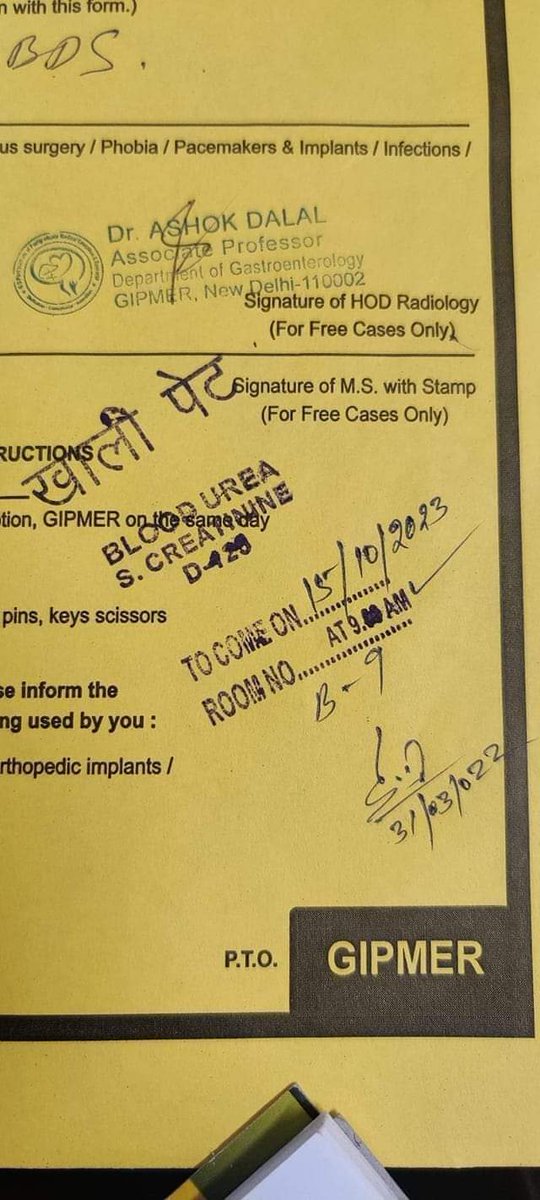 n with this form.)
BDS.
us surgery / Phobia / Pacemakers & Implants / Infections /
Dr. ASHOK DALAL
Associate Professor
Department of Gastroenterology
GIPMER, New Delhi-110002
Signature of HOD Radiology
(For Free Cases Only)
खाली पेट
Signature of M.S. with Stamp
(For Free Cases Only)
RUCTIONS
tion, GIPMER on the same day
BLOOD UREA
S. CREATININE
pins, keys scissors
TO COME ON 15/10/2023
AT 9.00 AM
ROOM NO.
B-9
se inform the
ng used by you :
rthopedic implants /
31/03/022
P.T.O.
GIPMER